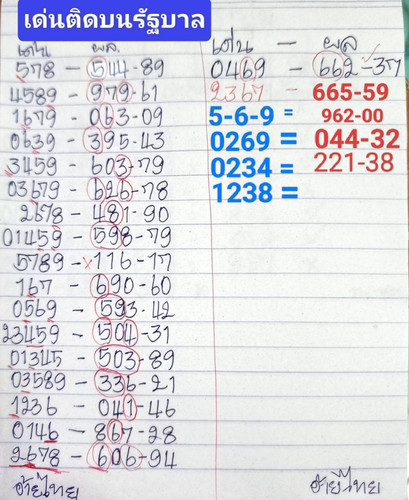 เด่นติดบนรัฐบาล
เด่น ผล.
578 - 544-89
4589 - 979-61
1679 - 063-09
0639 - 395-43
3459 - 603-79
03679 - 626-78
2678 - 481-90
01459 - 598-79
5789 - x116-17
167 - 690-60
0569 - 593-42
23459 - 504-31
01345 - 503-89
03589 - 336-21
1236 - 041-46
0146 - 867-28
2678 - 606-94
ฮ้ายไทย
เด่น - ผล
0469 - 662-37
2367 - 665-59
5-6-9 = 962-00
0269 = 044-32
0234 = 221-38
1238 =
ฮ้ายไทย